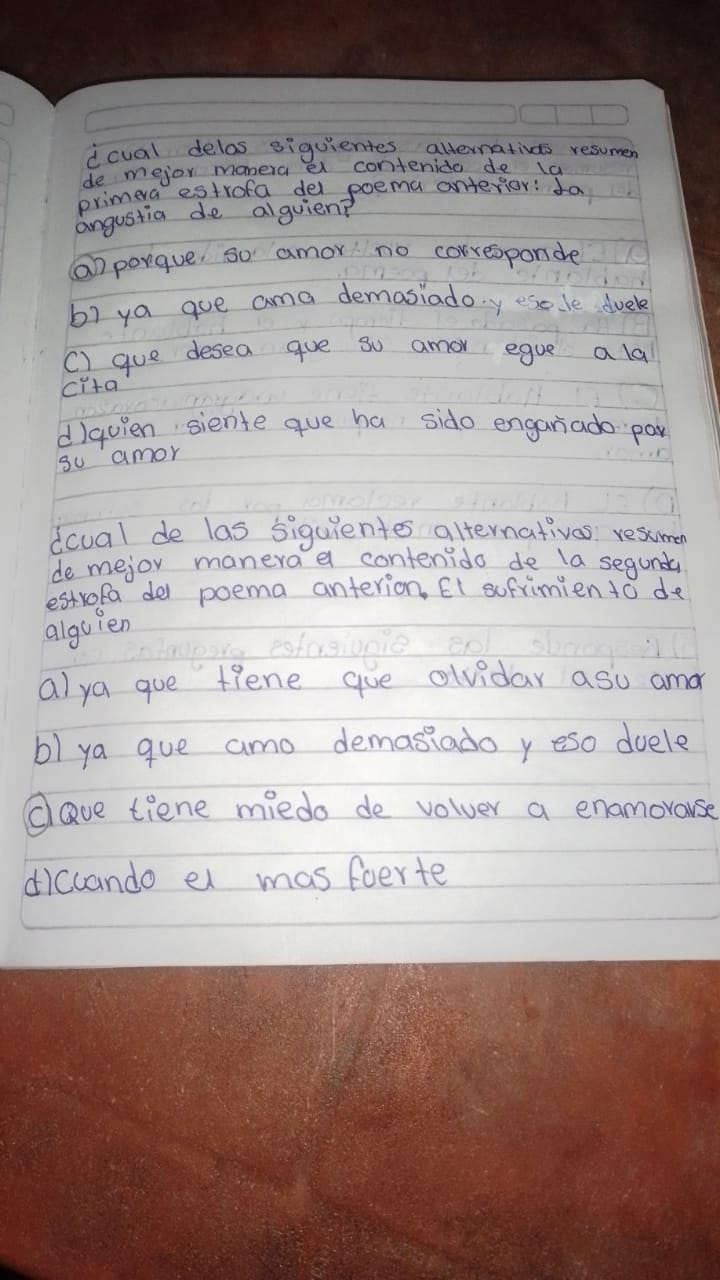 ¿cual delos siguientes alternativas resumen
de mejor manera el contenido de la
primera estrofa del poema anterior: La
angustia de alguien?
a) porque su amor no corresponde
b) ya que ama demasiado y eso le duele
c) que desea que su amor egue a la
cita
d) quien siente que ha sido engañado por
su amor
¿cual de las siguientes alternativas resumen
de mejor manera el contenido de la segunda
estrofa del poema anterion. El sufrimiento de
alguien
a) ya que tiene que olvidar asu amor
b) ya que amo demasiado y eso duele
c) Que tiene miedo de volver a enamorarse
d) Cuando el mas fuerte